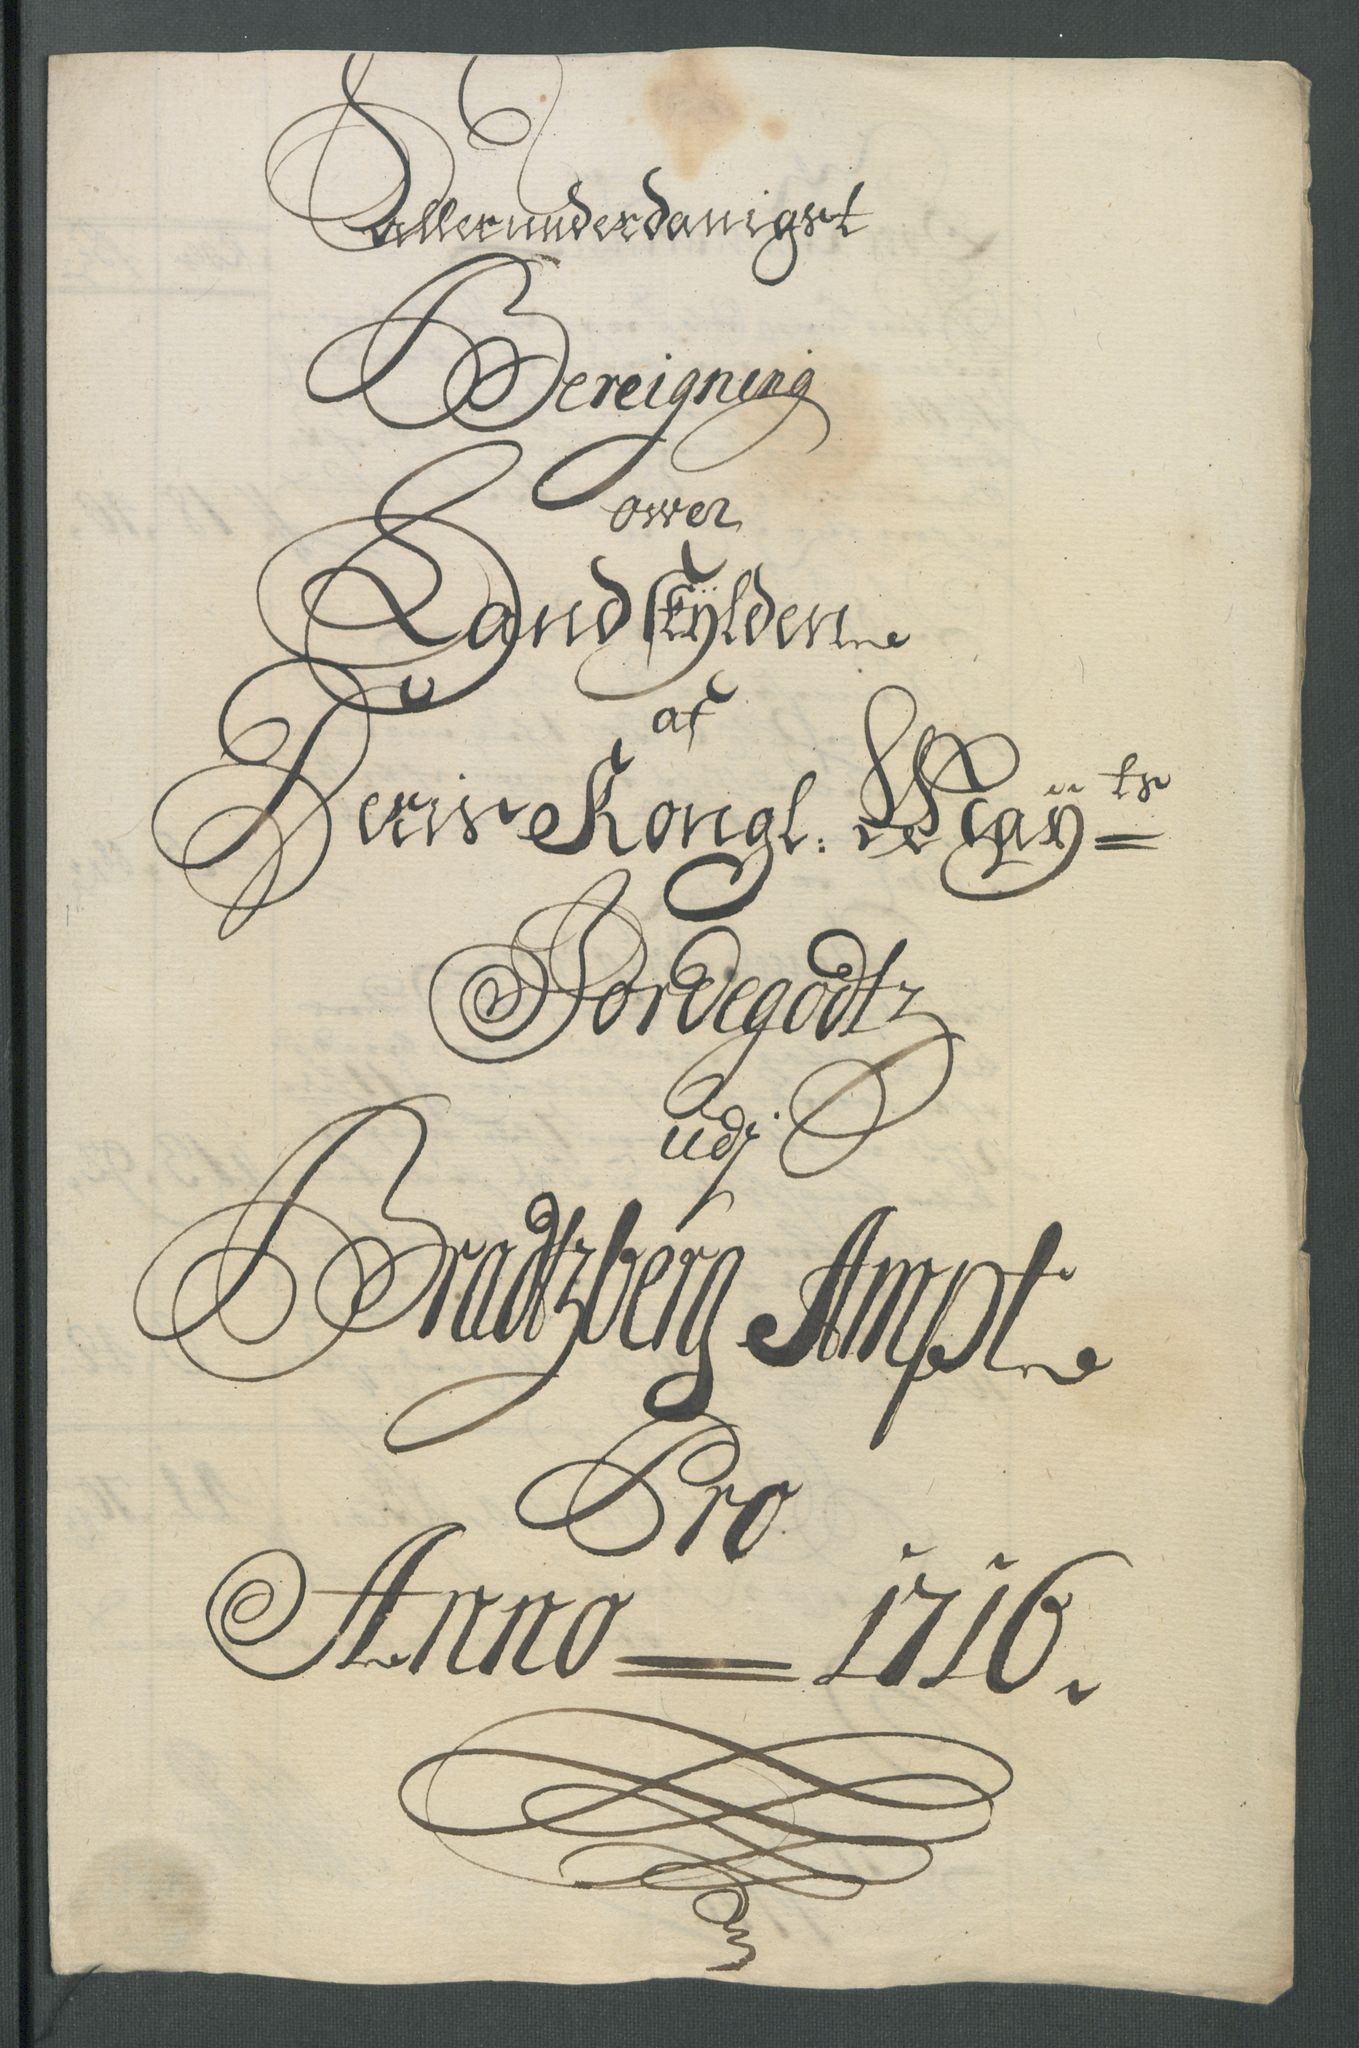 Allerunderdanigst
Bereigning
ower
Landskÿlden
af
Deris Kongl: Maÿts
Jordegodtz
udj
Bradtzberg Ampt
Pro
Anno 1716.